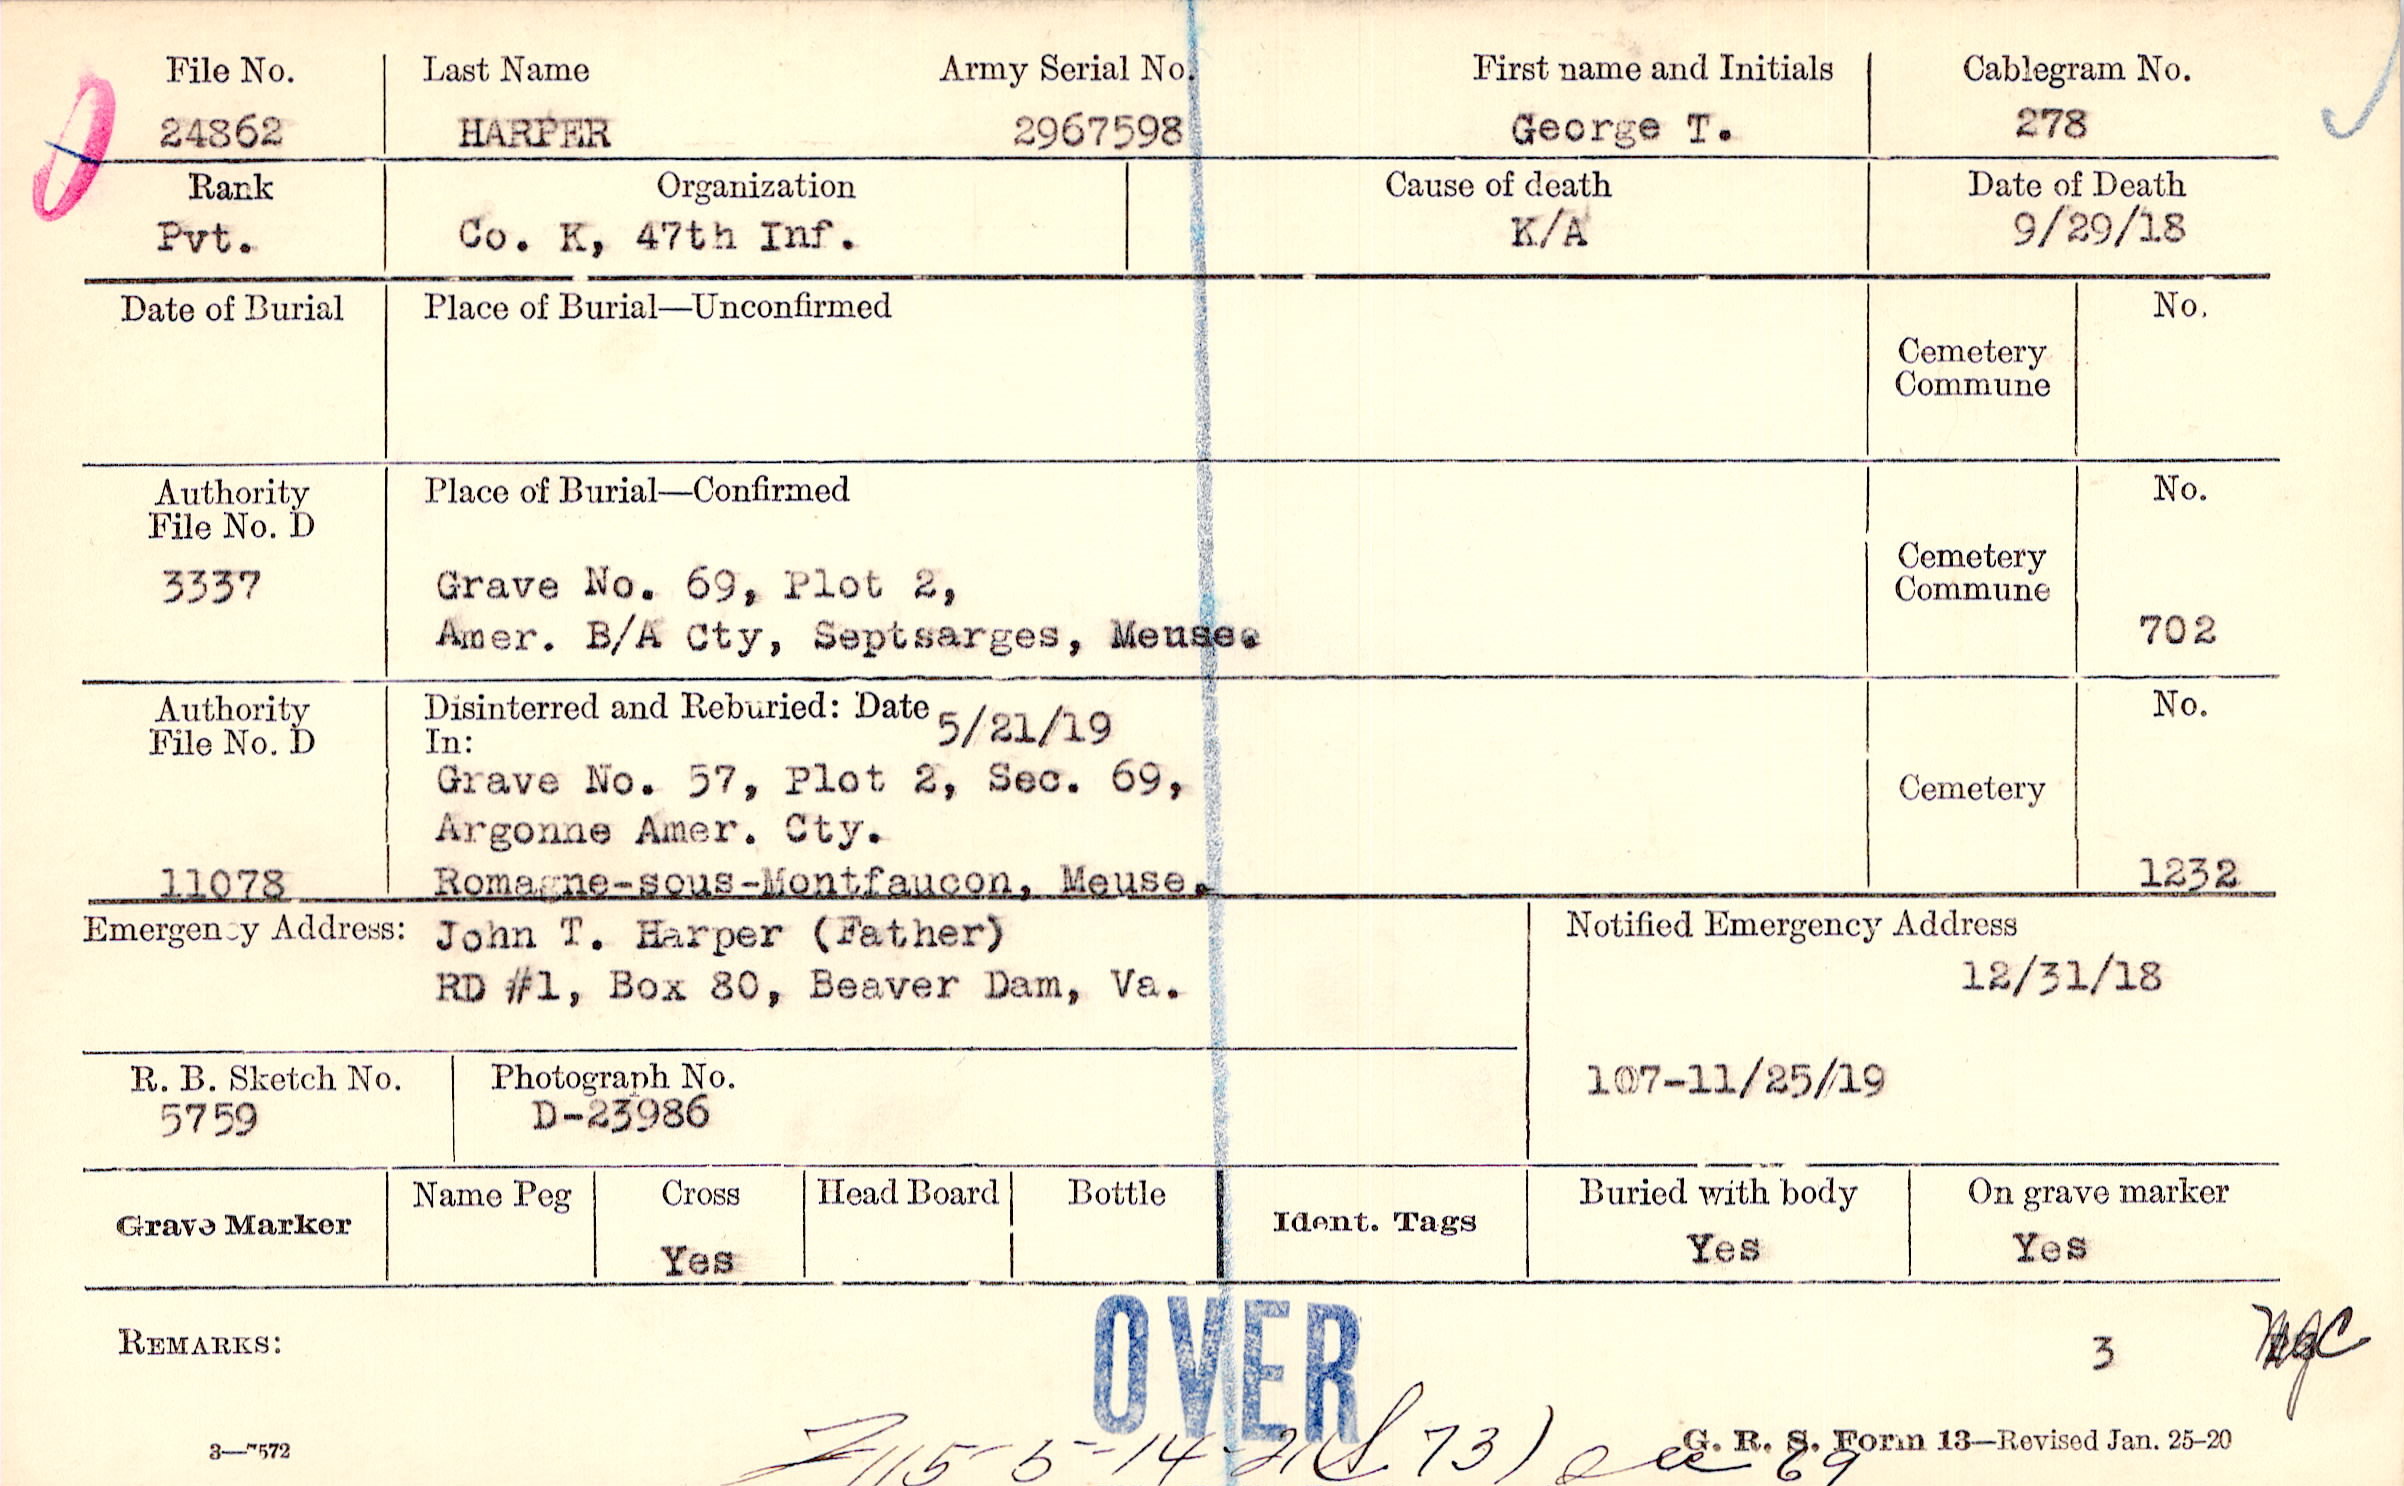 File No. Last Name Army Serial No. First name and Initials Cablegram No.
24862 HARPER 2967598 George T. 278
Rank Organization Cause of death Date of Death
Pvt. Co. K, 47th Inf. K/A 9/29/18
Date of Burial Place of Burial—Unconfirmed No.
Cemetery
Commune
Authority Place of Burial—Confirmed No.
File No. D
Cemetery
Commune
3337 Grave No. 69, Plot 2,
Amer. B/A Cty, Septsarges, Meuse. 702
Authority Disinterred and Reburied: Date 5/21/19 No.
File No. D In:
Grave No. 57, Plot 2, Sec. 69, Cemetery
Argonne Amer. Cty.
11078 Romagne-sous-Montfaucon, Meuse. 1232
Emergency Address: John T. Harper (Father) Notified Emergency Address
RD #1, Box 80, Beaver Dam, Va. 12/31/18
R. B. Sketch No. Photograph No. 107-11/25/19
5759 D-23986
Grave Marker Name Peg Cross Head Board Bottle Ident. Tags Buried with body On grave marker
Yes Yes Yes
OVER
REMARKS: 3
3—7572 G. R. S. Form 13—Revised Jan. 25-20
115 5-14-21 (S. 73) see 69